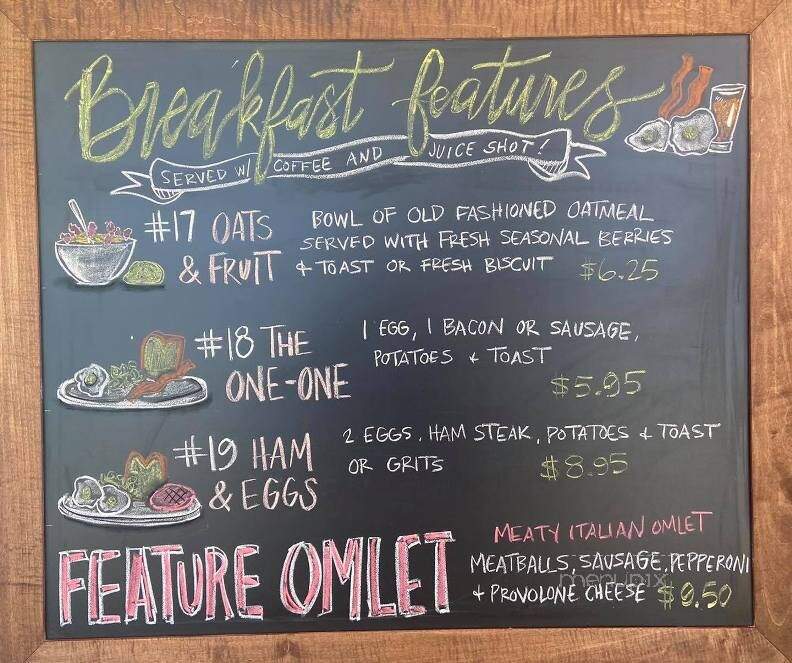 Breakfast features
SERVED W/ COFFEE AND JUICE SHOT!
#17 OATS & FRUIT
BOWL OF OLD FASHIONED OATMEAL
SERVED WITH FRESH SEASONAL BERRIES
+ TOAST OR FRESH BISCUIT $6.25
#18 THE ONE-ONE
1 EGG, 1 BACON OR SAUSAGE,
POTATOES + TOAST
$5.95
#19 HAM & EGGS
2 EGGS, HAM STEAK, POTATOES + TOAST
OR GRITS $8.95
FEATURE OMLET
MEATY ITALIAN OMLET
MEATBALLS, SAUSAGE, PEPPERONI
+ PROVOLONE CHEESE $9.50
menupix